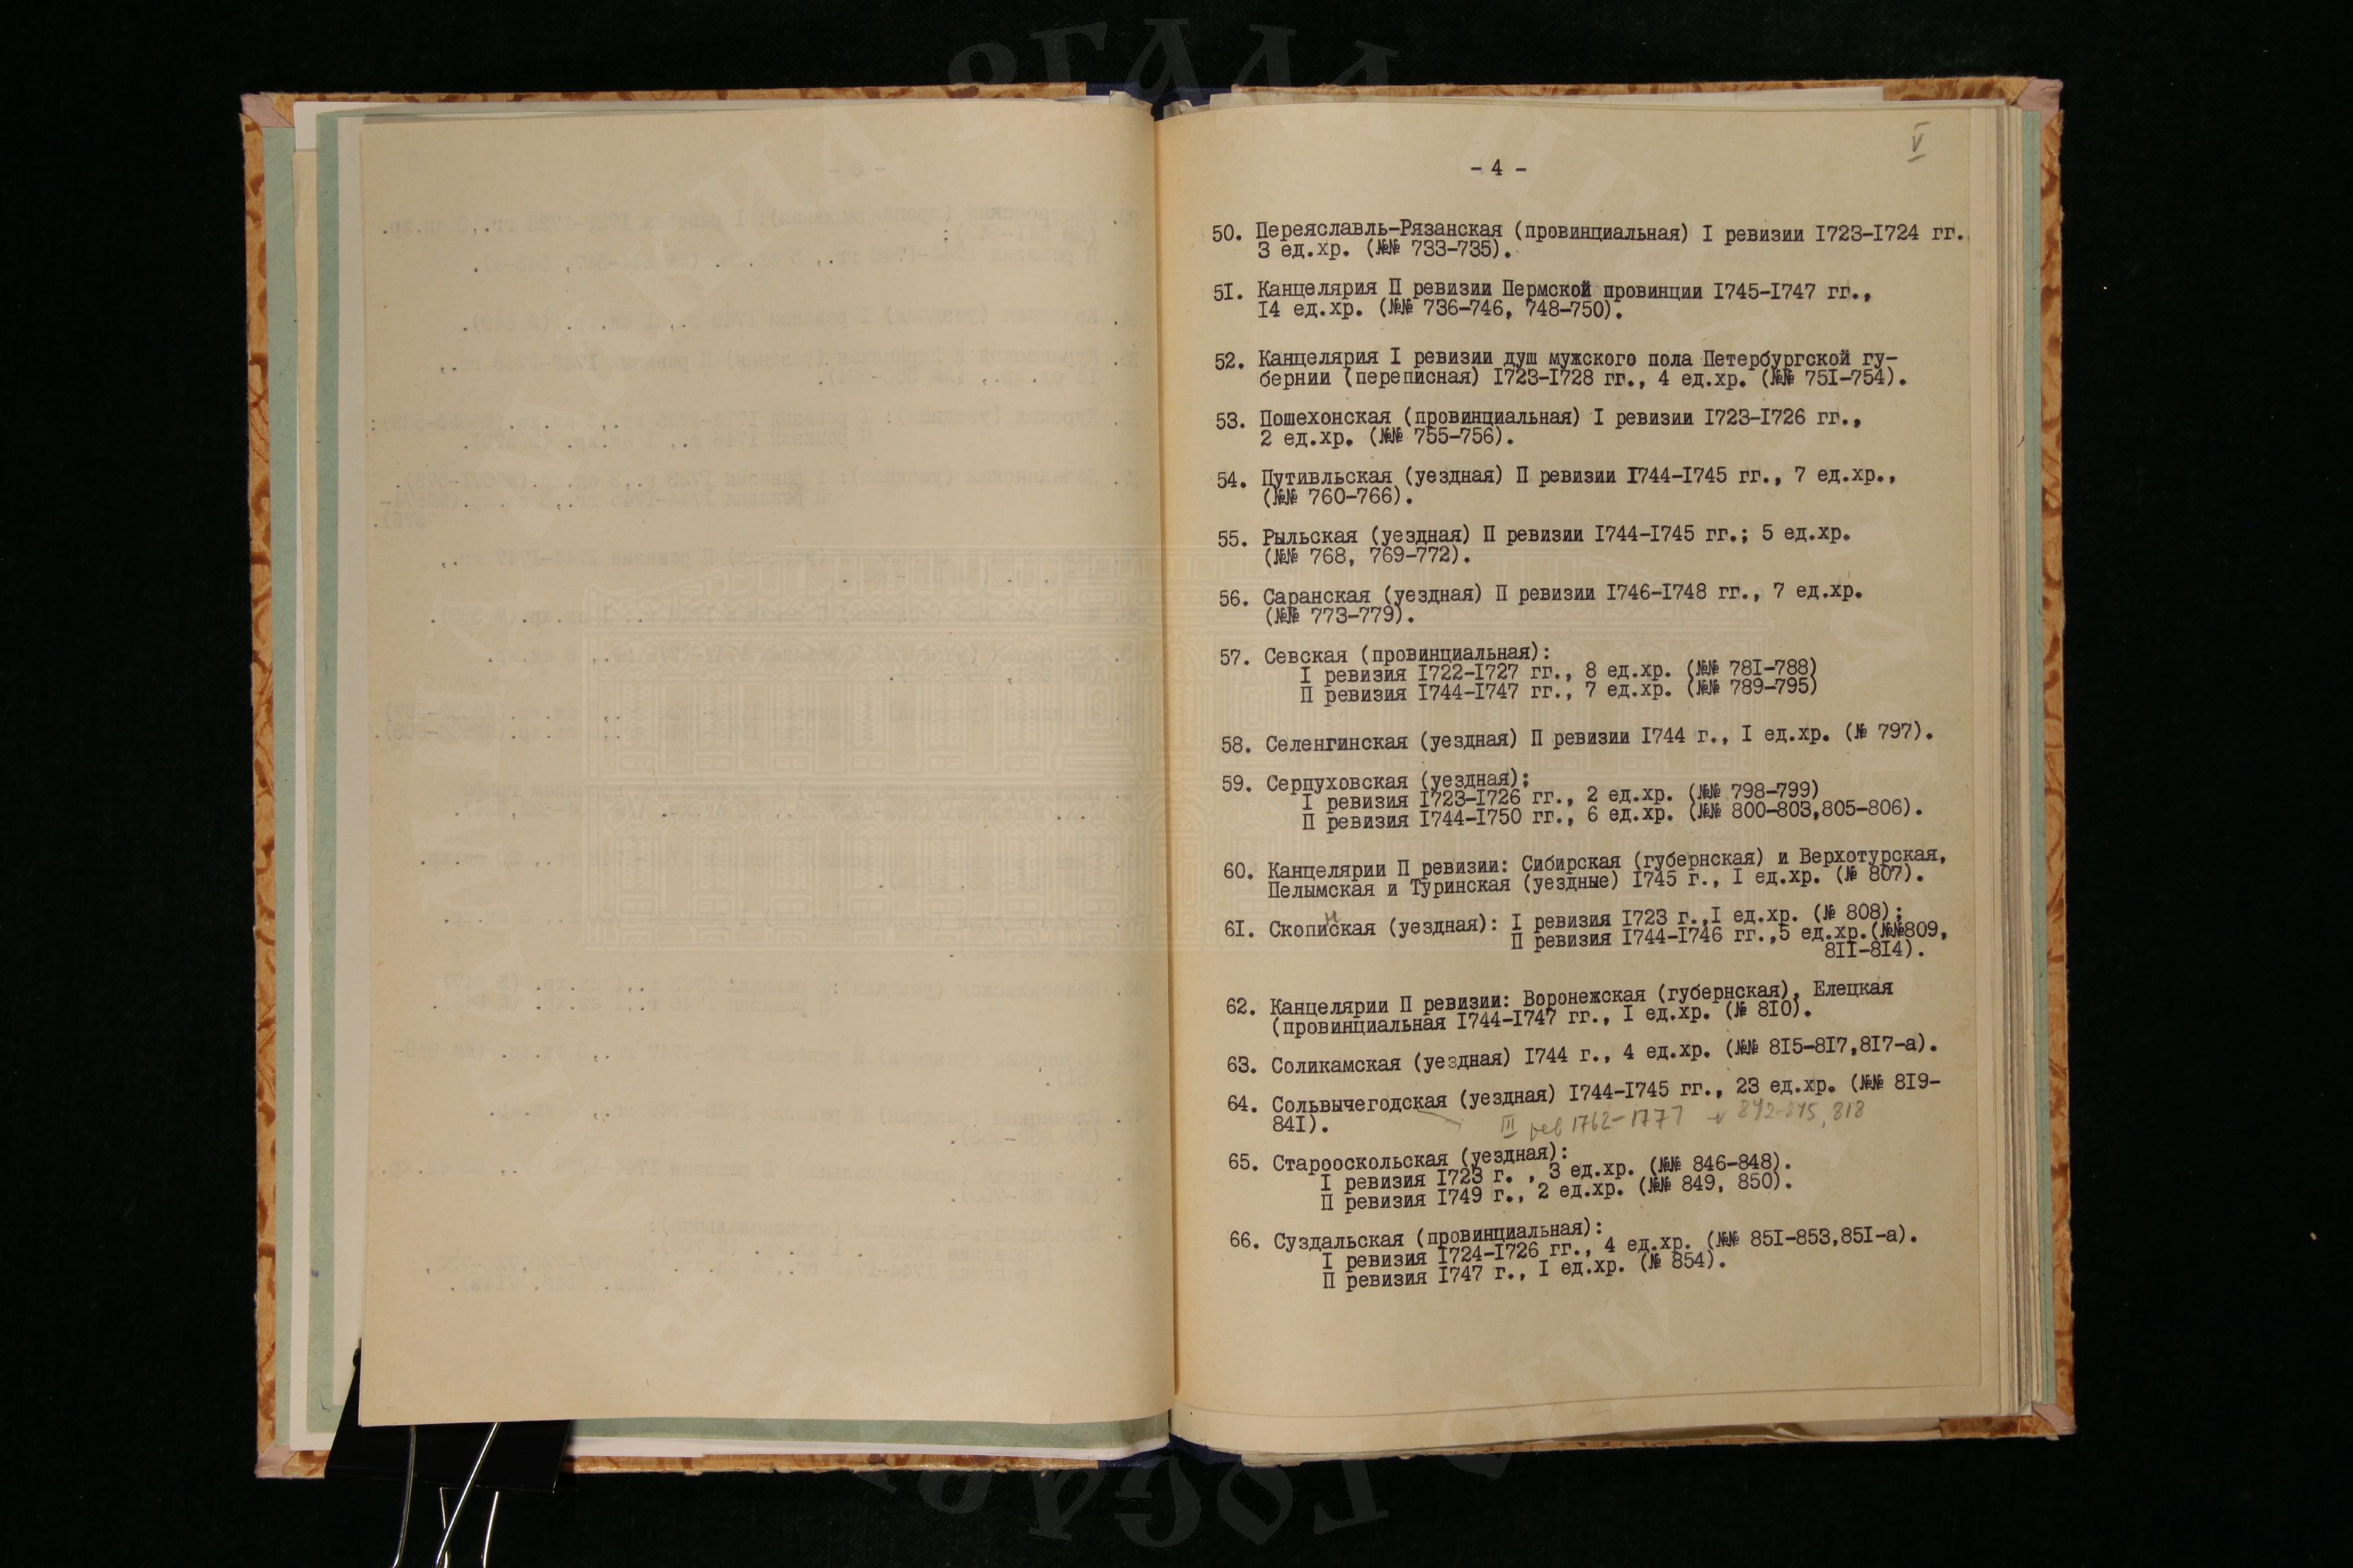 V
- 4 -
50. Переяславль-Рязанская (провинциальная) I ревизии I723-I724 гг.
3 ед.хр. (№№ 733-735).
5I. Канцелярия П ревизии Пермской провинции I745-I747 гг.,
I4 ед.хр. (№№ 736-746, 748-750).
52. Канцелярия I ревизии душ мужского пола Петербургской гу-
бернии (переписная) I723-I728 гг., 4 ед.хр. (№№ 75I-754).
53. Пошехонская (провинциальная) I ревизии I723-I726 гг.,
2 ед.хр. (№№ 755-756).
54. Путивльская (уездная) П ревизии I744-I745 гг., 7 ед.хр.,
(№№ 760-766).
55. Рыльская (уездная) П ревизии I744-I745 гг.; 5 ед.хр.
(№№ 768, 769-772).
56. Саранская (уездная) П ревизии I746-I748 гг., 7 ед.хр.
(№№ 773-779).
57. Севская (провинциальная):
I ревизия I722-I727 гг., 8 ед.хр. (№№ 78I-788)
П ревизия I744-I747 гг., 7 ед.хр. (№№ 789-795)
58. Селенгинская (уездная) П ревизии I744 г., I ед.хр. (№ 797).
59. Серпуховская (уездная):
I ревизия I723-I726 гг., 2 ед.хр. (№№ 798-799)
П ревизия I744-I750 гг., 6 ед.хр. (№№ 800-803,805-806).
60. Канцелярии П ревизии: Сибирская (губернская) и Верхотурская,
Пелымская и Туринская (уездные) I745 г., I ед.хр. (№ 807).
6I. Скопинская (уездная): I ревизия I723 г.,I ед.хр. (№ 808);
П ревизия I744-I746 гг.,5 ед.хр.(№№809,
8II-8I4).
62. Канцелярии П ревизии: Воронежская (губернская), Елецкая
(провинциальная I744-I747 гг., I ед.хр. (№ 8I0).
63. Соликамская (уездная) I744 г., 4 ед.хр. (№№ 8I5-8I7,8I7-а).
64. Сольвычегодская (уездная) I744-I745 гг., 23 ед.хр. (№№ 8I9-
84I). III рев 1762-1777 842-845, 818
65. Старооскольская (уездная):
I ревизия I723 г. , 3 ед.хр. (№№ 846-848).
П ревизия I749 г., 2 ед.хр. (№№ 849, 850).
66. Суздальская (провинциальная):
I ревизия I724-I726 гг., 4 ед.хр. (№№ 85I-853,85I-а).
П ревизия I747 г., I ед.хр. (№ 854).